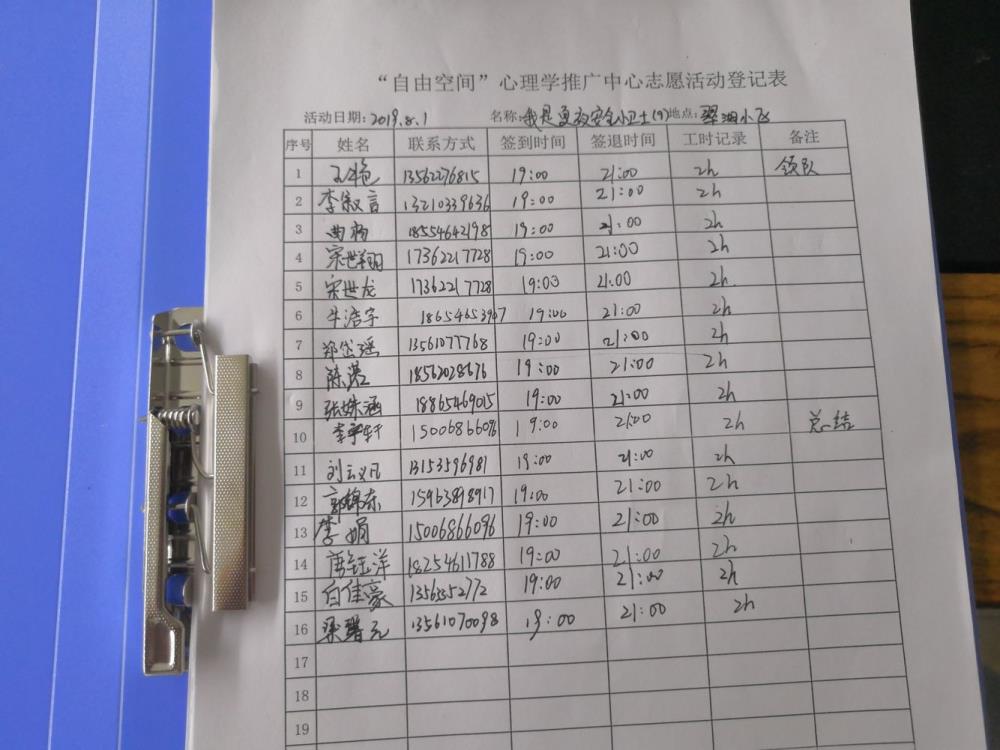 “自由空间”心理学推广中心志愿活动登记表
活动日期：2019.8.1 名称：我是夏夜安全小卫士(9) 地点：翠湖小区
序号 姓名 联系方式 签到时间 签退时间 工时记录 备注
1 王艳 13562276815 19:00 21:00 2h 领队
2 李叙言 13210339636 19:00 21:00 2h
3 曲杨 18554642198 19:00 21:00 2h
4 宋世翔 17362217728 19:00 21:00 2h
5 宋世龙 17362217728 19:00 21:00 2h
6 牛浩宇 18654653947 19:00 21:00 2h
7 郑岱瑶 13561077768 19:00 21:00 2h
8 陈 18562028676 19:00 21:00 2h
9 张姝涵 18865469015 19:00 21:00 2h
10 李宇轩 15006866096 19:00 21:00 2h 总结
11 刘云凡 13153596981 19:00 21:00 2h
12 郭锦东 15963898917 19:00 21:00 2h
13 李娟 15006866096 19:00 21:00 2h
14 唐钰洋 18254611788 19:00 21:00 2h
15 白佳豪 19:00 21:00 2h
16 梁曙元 13561070098 19:00 21:00 2h
17
18
19